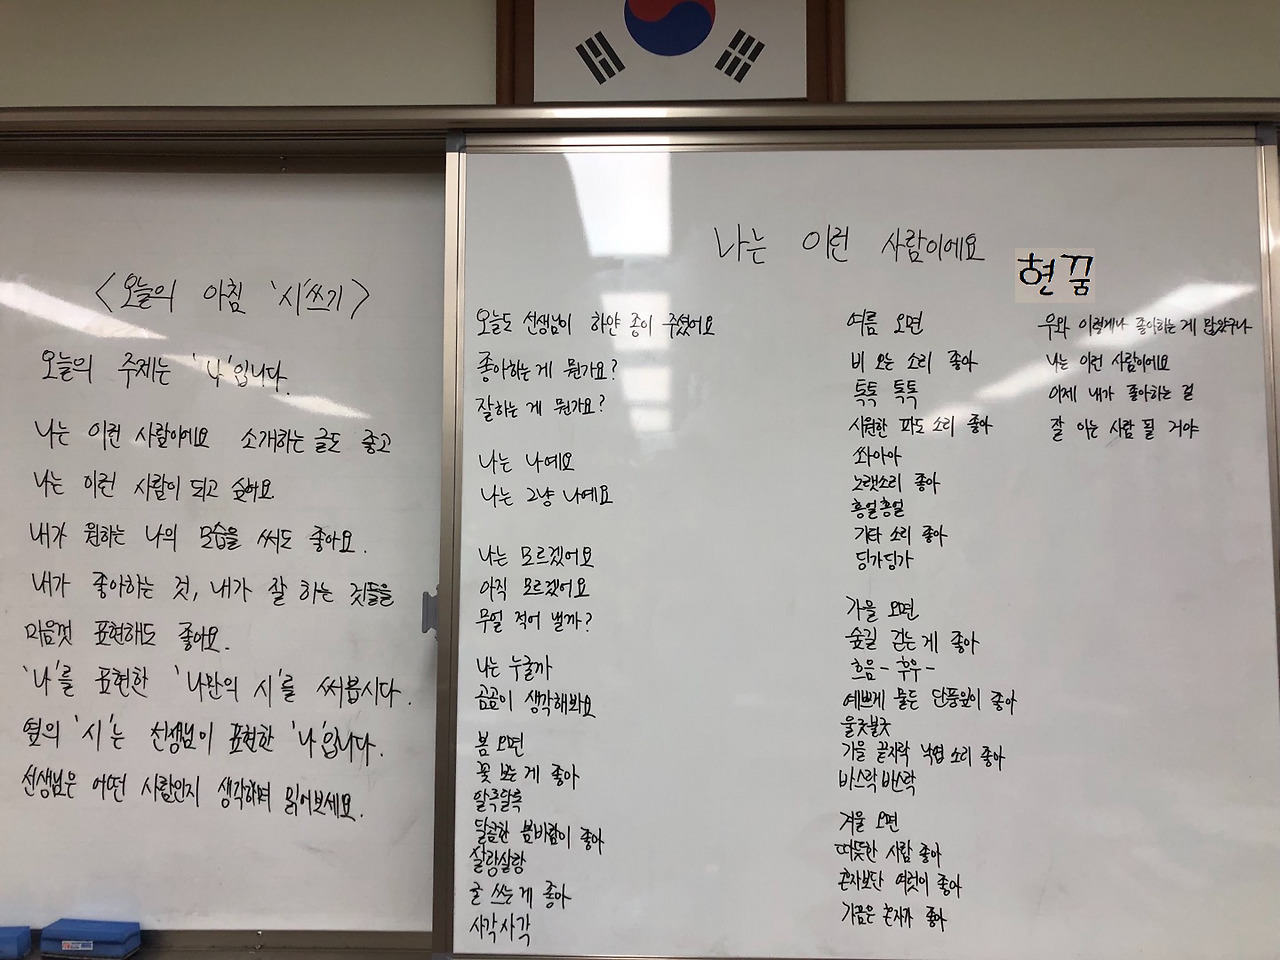 <오늘의 아침 '시'쓰기>
오늘의 주제는 '나'입니다.
나는 이런 사람이에요 소개하는 글도 좋고
나는 이런 사람이 되고 싶어요
내가 원하는 나의 모습을 써도 좋아요.
내가 좋아하는 것, 내가 잘 하는 것들을
마음껏 표현해도 좋아요.
'나'를 표현한 '나만의 시'를 써봅시다.
옆의 '시'는 선생님이 표현한 '나'입니다.
선생님은 어떤 사람인지 생각하며 읽어보세요.
나는 이런 사람이에요
현꿈
오늘도 선생님이 하얀 종이 주셨어요
좋아하는 게 뭔가요?
잘하는 게 뭔가요?
나는 나예요
나는 그냥 나예요
나는 모르겠어요
아직 모르겠어요
무얼 적어 낼까?
나는 누굴까
곰곰이 생각해봐요
봄 오면
꽃 보는 게 좋아
알록달록
달콤한 봄바람이 좋아
살랑살랑
글 쓰는 게 좋아
사각사각
여름 오면
비 오는 소리 좋아
톡톡 톡톡
시원한 파도 소리 좋아
쏴아아
노랫소리 좋아
흥얼흥얼
기타 소리 좋아
딩가딩가
가을 오면
숲길 걷는 게 좋아
흐음- 후우-
예쁘게 물든 단풍잎이 좋아
울긋불긋
가을 끝자락 낙엽 소리 좋아
바스락바스락
겨울 오면
따뜻한 사람 좋아
혼자보단 여럿이 좋아
가끔은 혼자가 좋아
우와 이렇게나 좋아하는 게 많았구나
나는 이런 사람이에요
이제 내가 좋아하는 걸
잘 아는 사람 될 거야